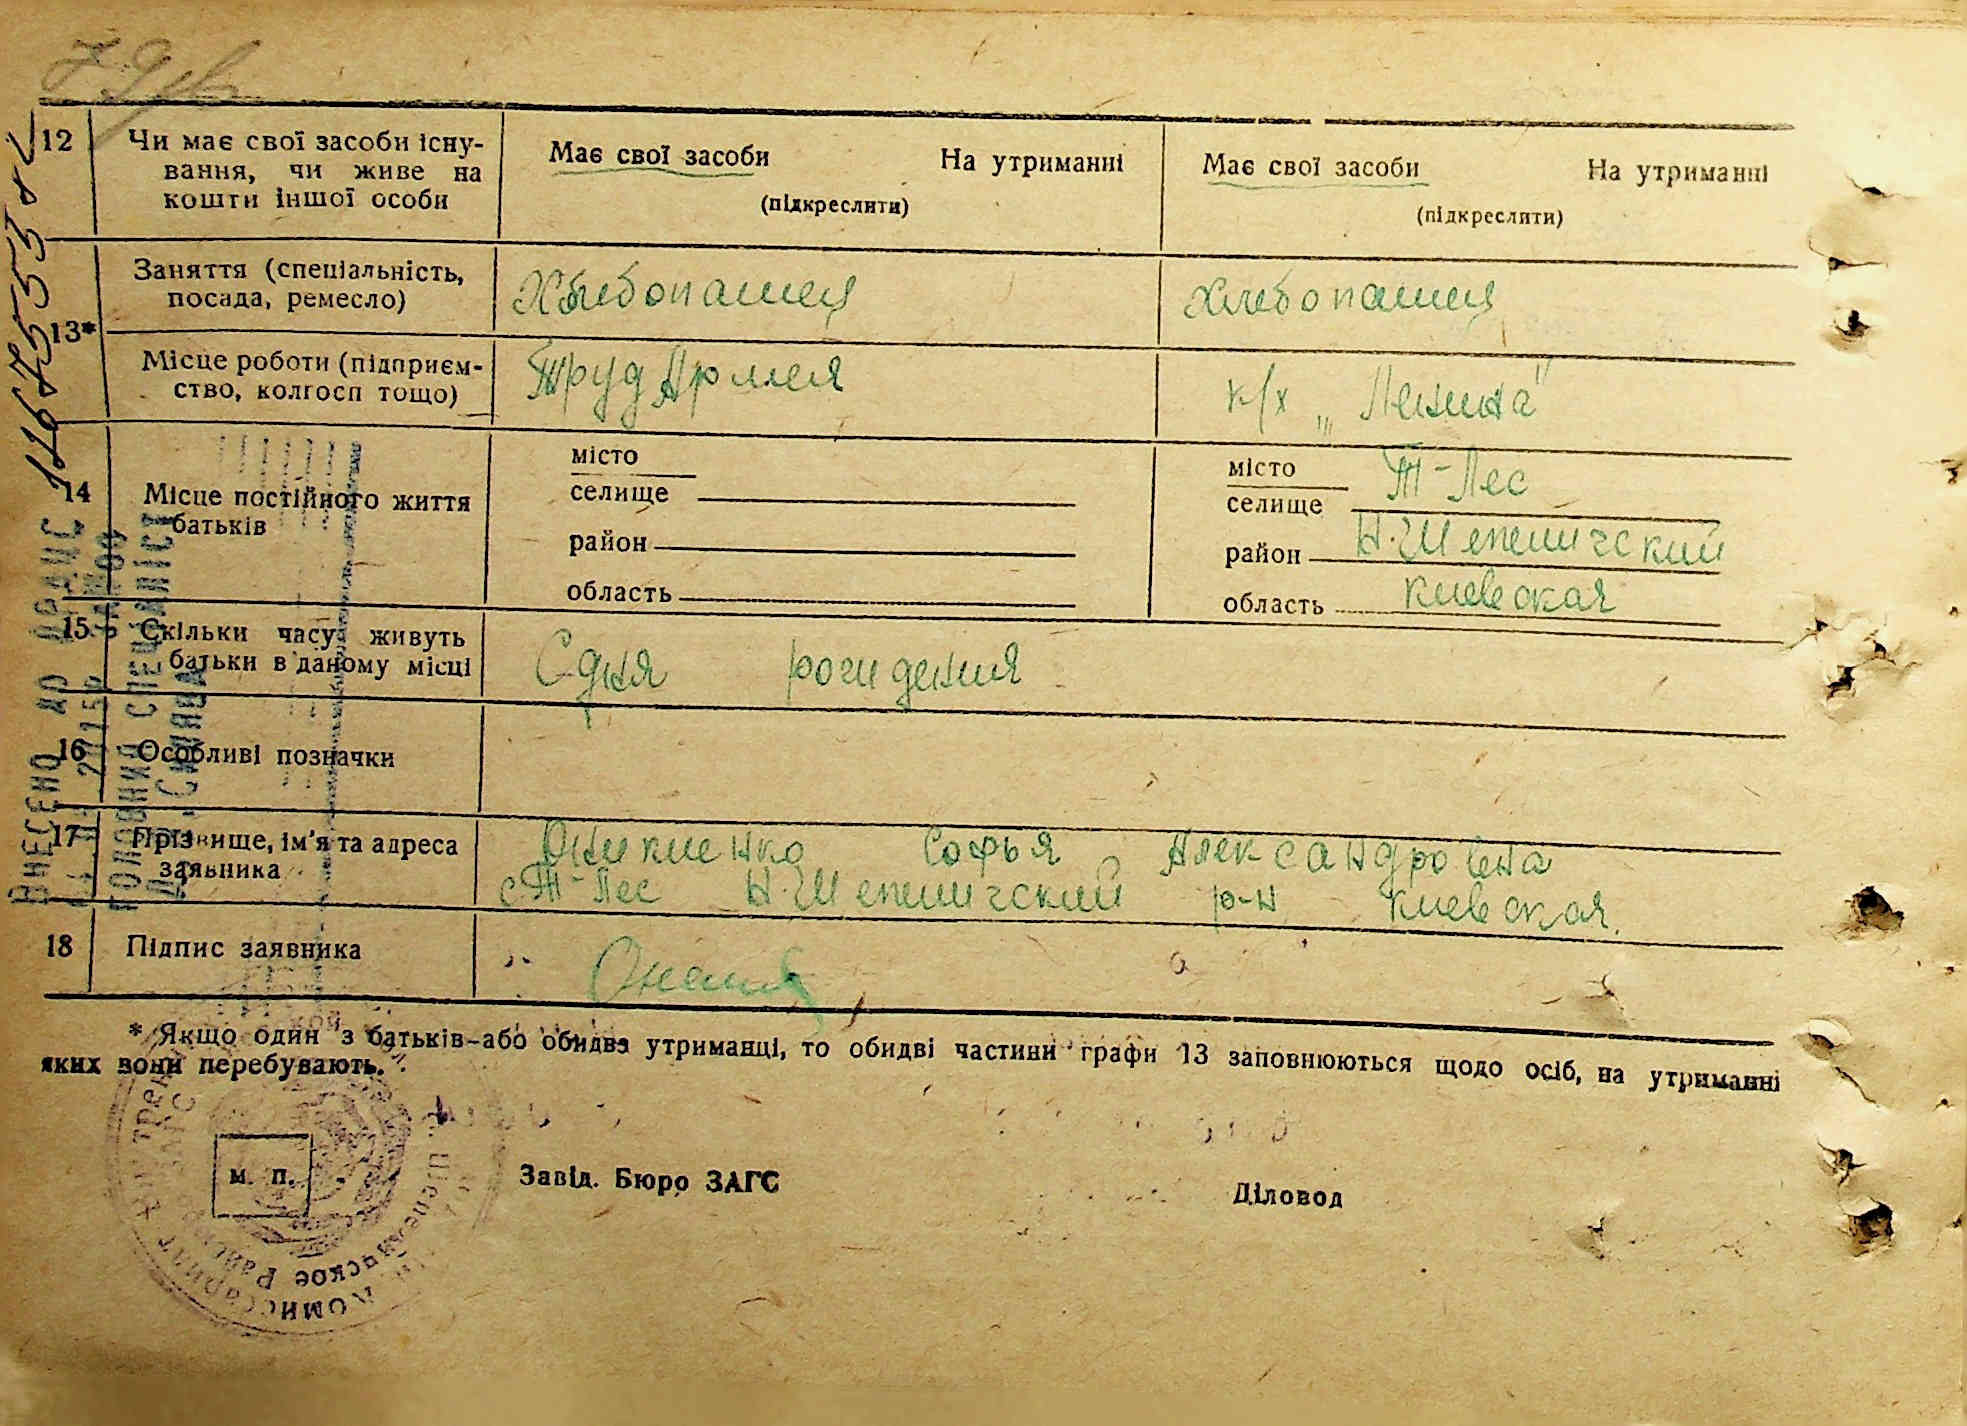 12
Чи має свої засоби існу-
вання, чи живе на
кошти іншої особи
Має свої засоби На утриманні
(підкреслити)
Має свої засоби На утриманні
(підкреслити)
13*
Заняття (спеціальність,
посада, ремесло)
Хлебопашец
Хлебопашец
Місце роботи (підприєм-
ство, колгосп тощо)
Труд Армия
к/х „Ленина"
14
Місце постійного життя
батьків
місто
селище
район
область
місто
селище Т-Лес
район Н.Шепеличский
область Киевская
15
Скільки часу живуть
батьки в даному місці
С дня рождения
16
Особливі позначки
17
Прізвище, ім'я та адреса
заявника
Софья Александровна
с Т-Лес Н-Шепеличский р-н Киевская.
18
Підпис заявника
* Якщо один з батьків або обидва утриманці, то обидві частини графи 13 заповнюються щодо осіб, на утриманні
яких вони перебувають.
м. п.
Завід. Бюро ЗАГС
Діловод
ВНЕСЕНО ДО ДРАЦС
ГОЛОВНИЙ СПЕЦІАЛІСТ